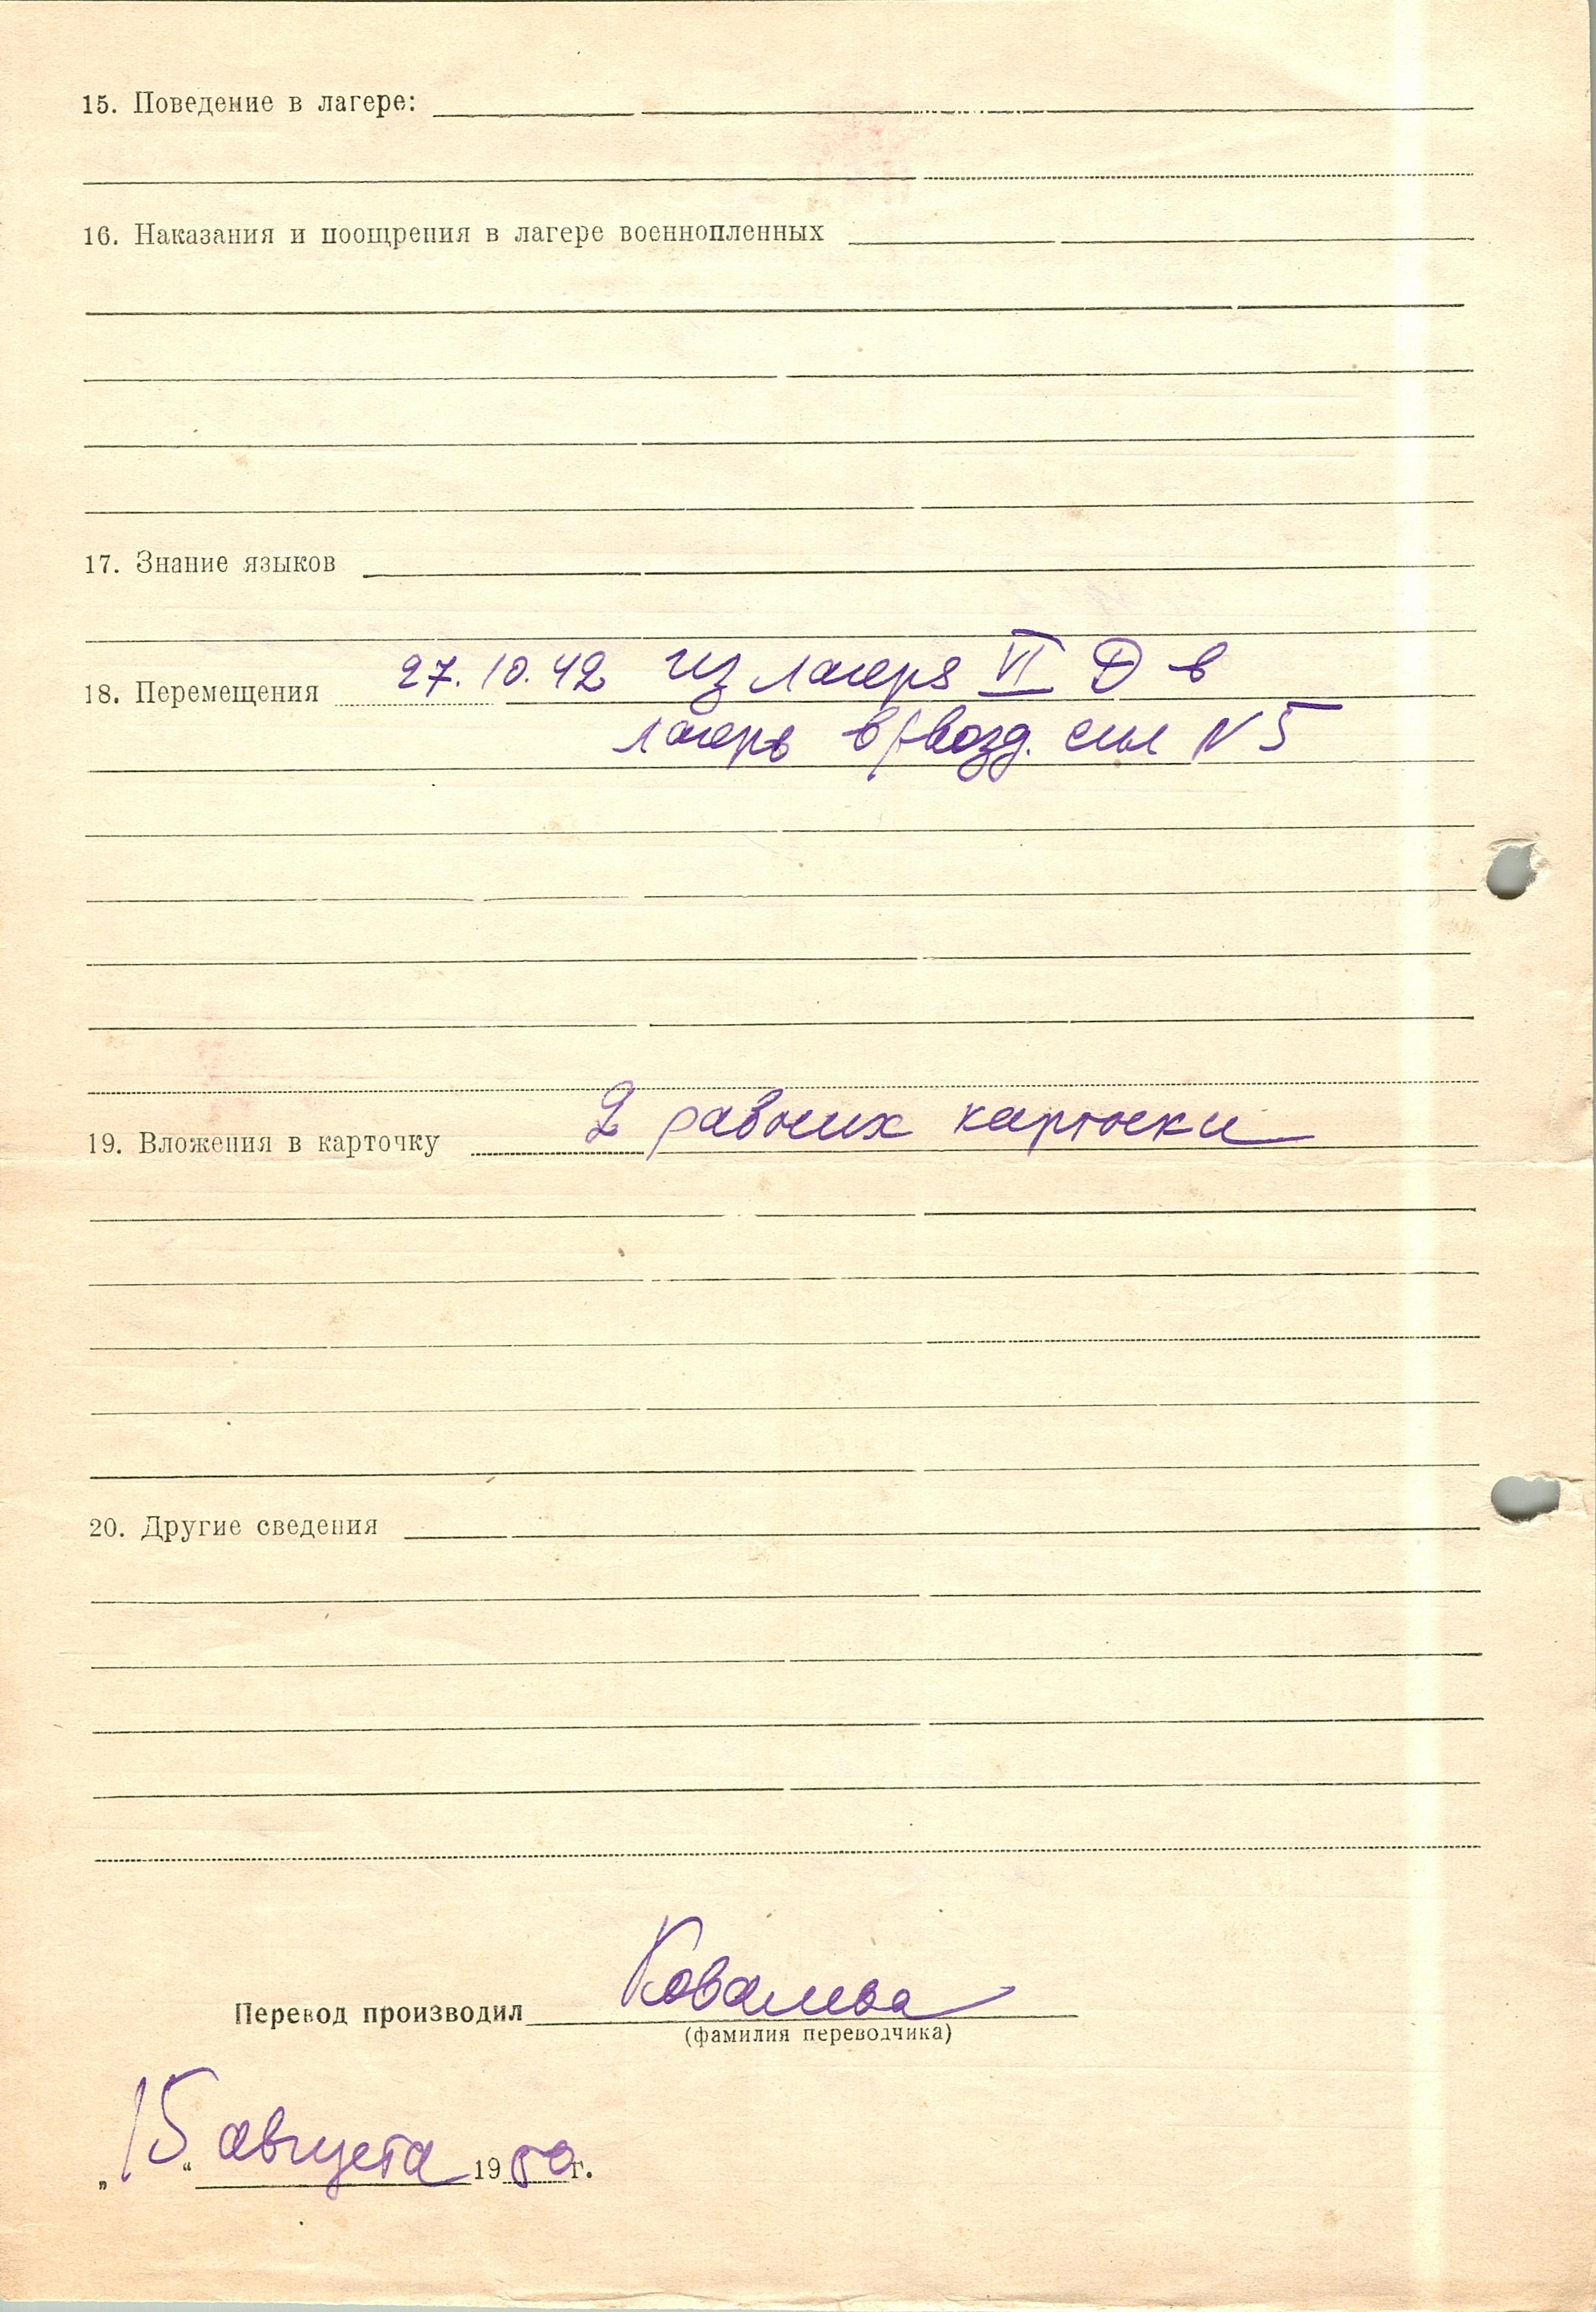 15. Поведение в лагере:
16. Наказания и поощрения в лагере военнопленных
17. Знание языков
18. Перемещения 27.10.42 из лагеря VI Д в
лагерь в/возд. сил N 5
19. Вложения в карточку 2 рабочих карточки
20. Другие сведения
Перевод производил Ковалева
(фамилия переводчика)
„15“ августа 1950г.